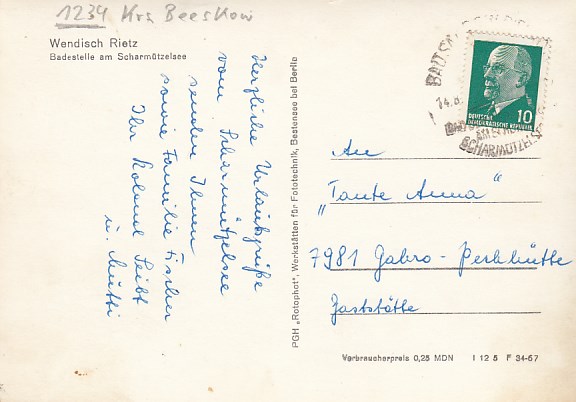 1234 Krs Beeskow
Wendisch Rietz
Badestelle am Scharmützelsee
Herzliche Urlaubsgrüße
vom Scharmützelsee
senden Ihnen
sowie Familie Fischer
Ihr Roland Seibt
u. Mutti
PGH „Rotophot“, Werkstätten für Fototechnik, Bestensee bei Berlin
BAD
14.8.
SCHARMÜTZELSEE
10
DEUTSCHE
DEMOKRATISCHE REPUBLIK
An
„Tante Anna“
7981 Gahro-Perlhütte
Gaststätte
Verbraucherpreis 0,25 MDN I 12 5 F 34-67